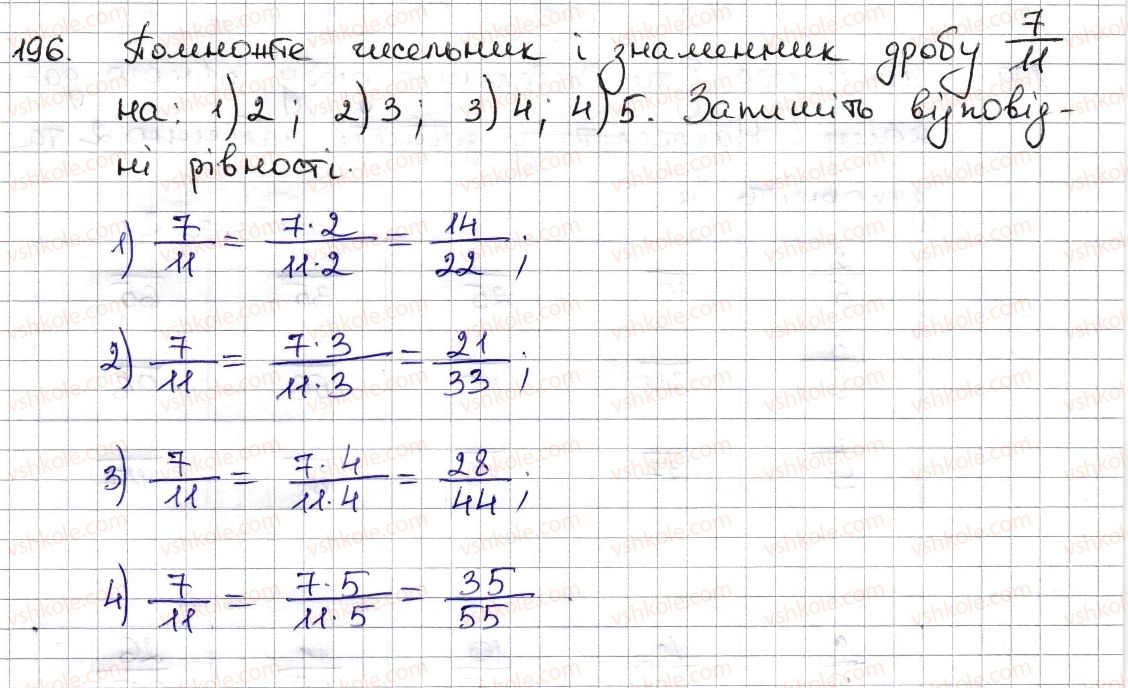 196. Помножте чисельник і знаменник дробу 7/11
на: 1) 2; 2) 3; 3) 4; 4) 5. Запишіть відповід-
ні рівності.
1) 7/11 = 7·2/11·2 = 14/22;
2) 7/11 = 7·3/11·3 = 21/33;
3) 7/11 = 7·4/11·4 = 28/44;
4) 7/11 = 7·5/11·5 = 35/55.
vshkole.com